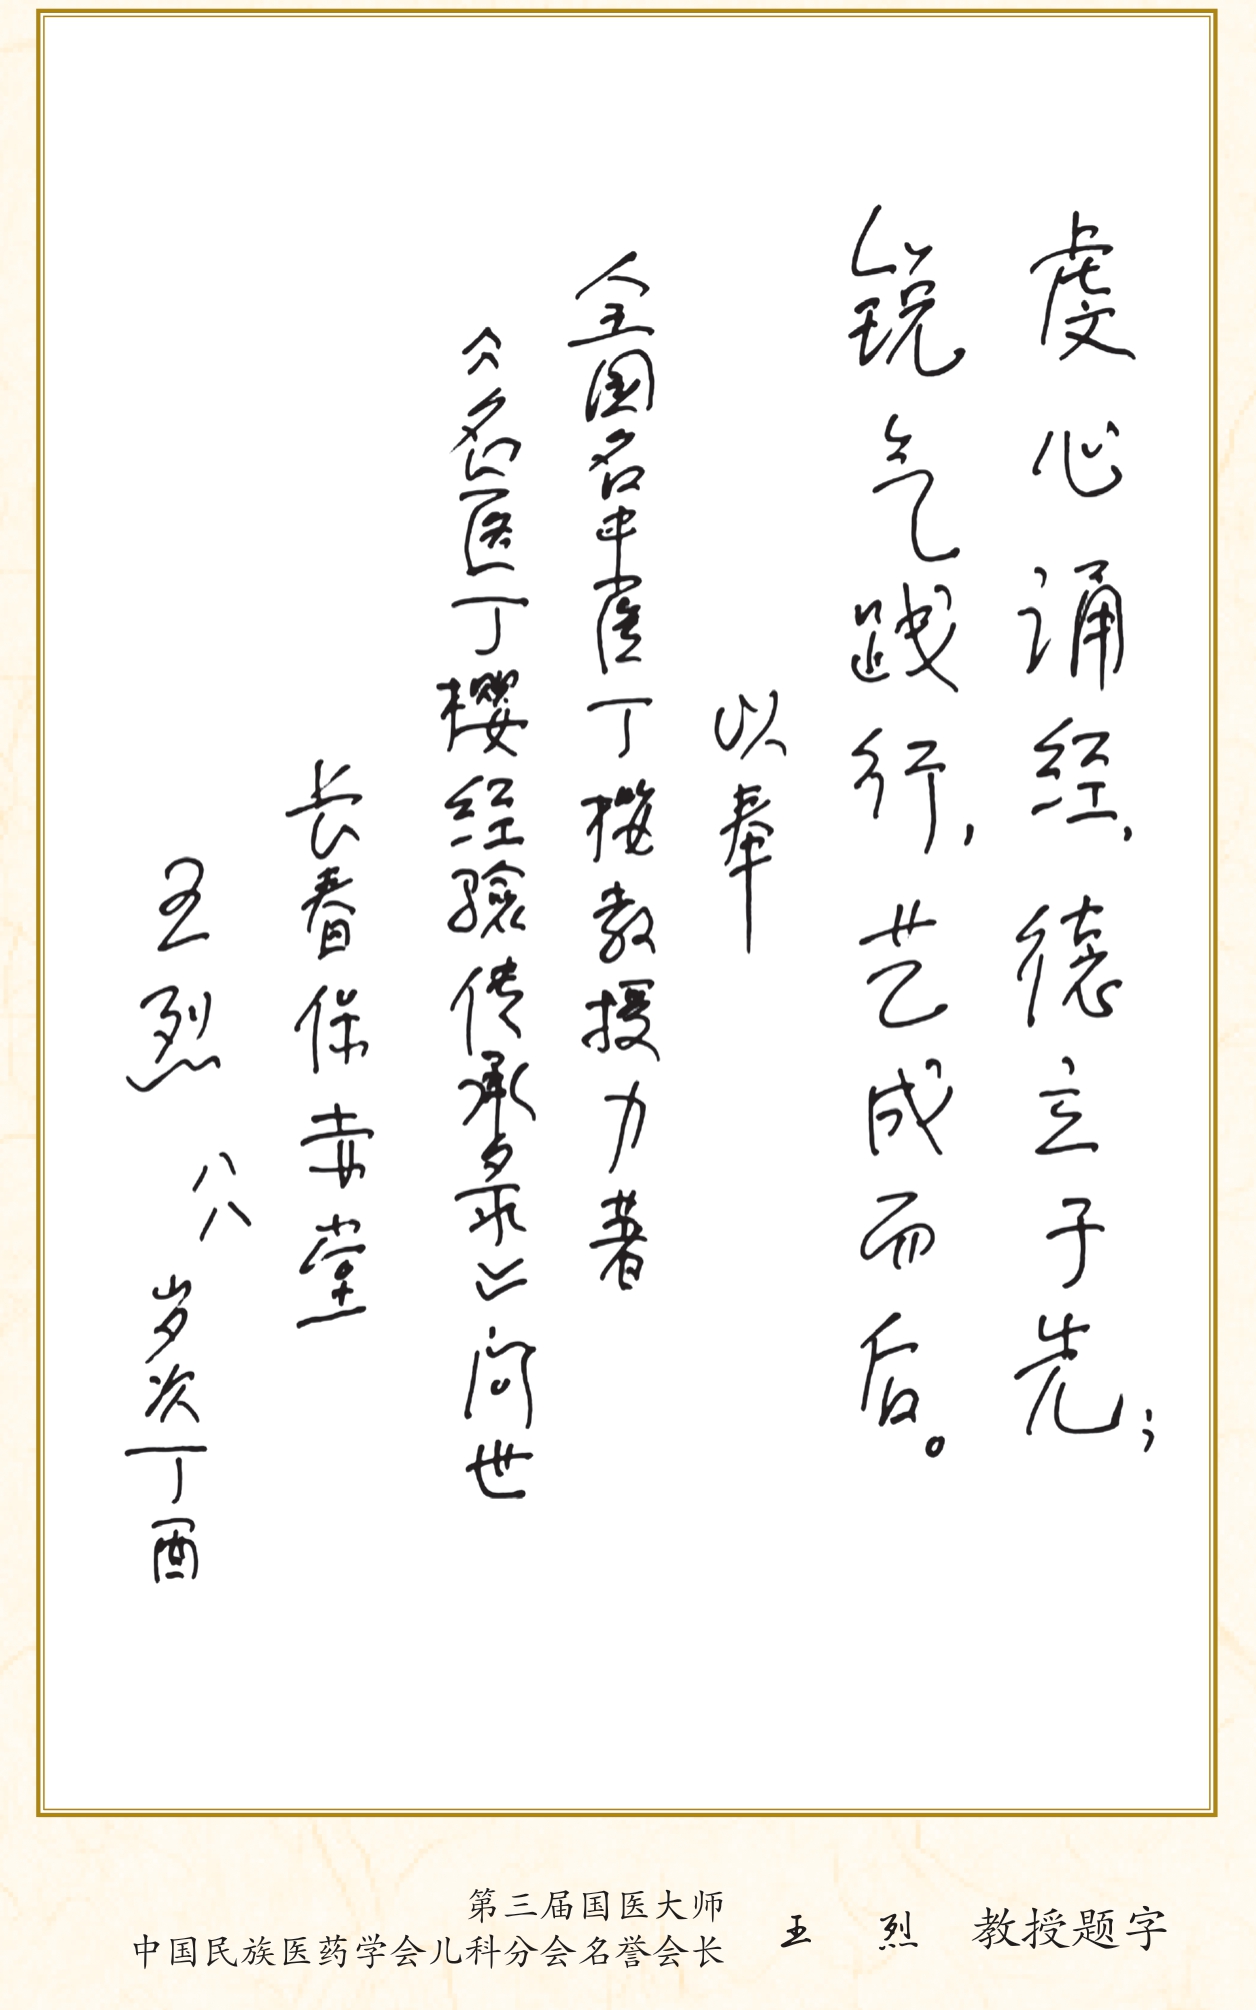 虔心诵经，德立于先；
锐气践行，艺成而后。
以奉
全国名中医丁樱教授力著
《名医丁樱经验传承录》问世
长春保赤堂
王烈 八八 岁次丁酉
第三届国医大师
中国民族医药学会儿科分会名誉会长
王 烈 教授题字